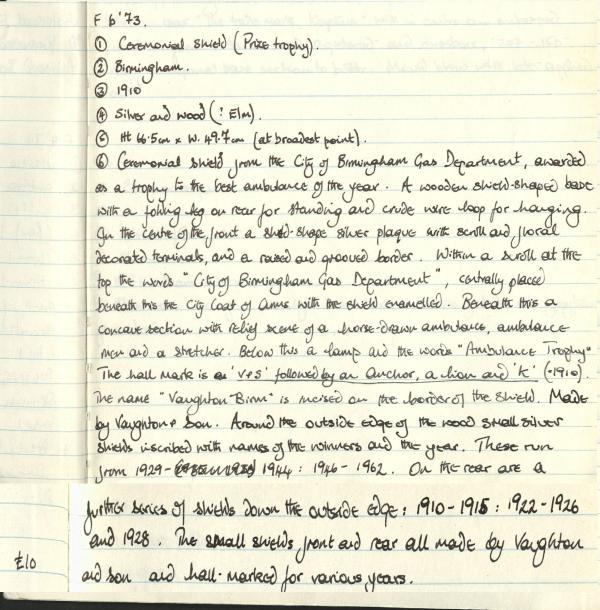 F 6'73.
① Ceremonial shield (Prize trophy).
② Birmingham.
③ 1910
④ Silver and wood (? Elm).
⑤ Ht 66.5cm x W. 49.7cm (at broadest point).
⑥ Ceremonial shield from the City of Birmingham Gas Department, awarded
as a trophy to the best ambulance of the year. A wooden shield-shaped base
with a folding leg on rear for standing and crude wire loop for hanging.
In the centre of the front a shield-shape silver plaque with scroll and floral
decorated terminals, and a raised and grooved border. Within a scroll at the
top the words "City of Birmingham Gas Department", centrally placed
beneath this the City Coat of Arms with the shield enamelled. Beneath this a
concave section with relief scene of a horse-drawn ambulance, ambulance
men and a stretcher. Below this a lamp and the words "Ambulance Trophy"
The hall mark is 'V+S' followed by an Anchor, a lion and 'K' (-1910).
The name "Vaughton-Birm" is incised on the border of the shield. Made
by Vaughton + Son. Around the outside edge of the wood small silver
shields inscribed with names of the winners and the year. These run
from 1929- 1944 : 1946 - 1962. On the rear are a
further series of shields down the outside edge: 1910-1915 : 1922-1926
and 1928. The small shields front and rear all made by Vaughton
£10
and son and hall-marked for various years.